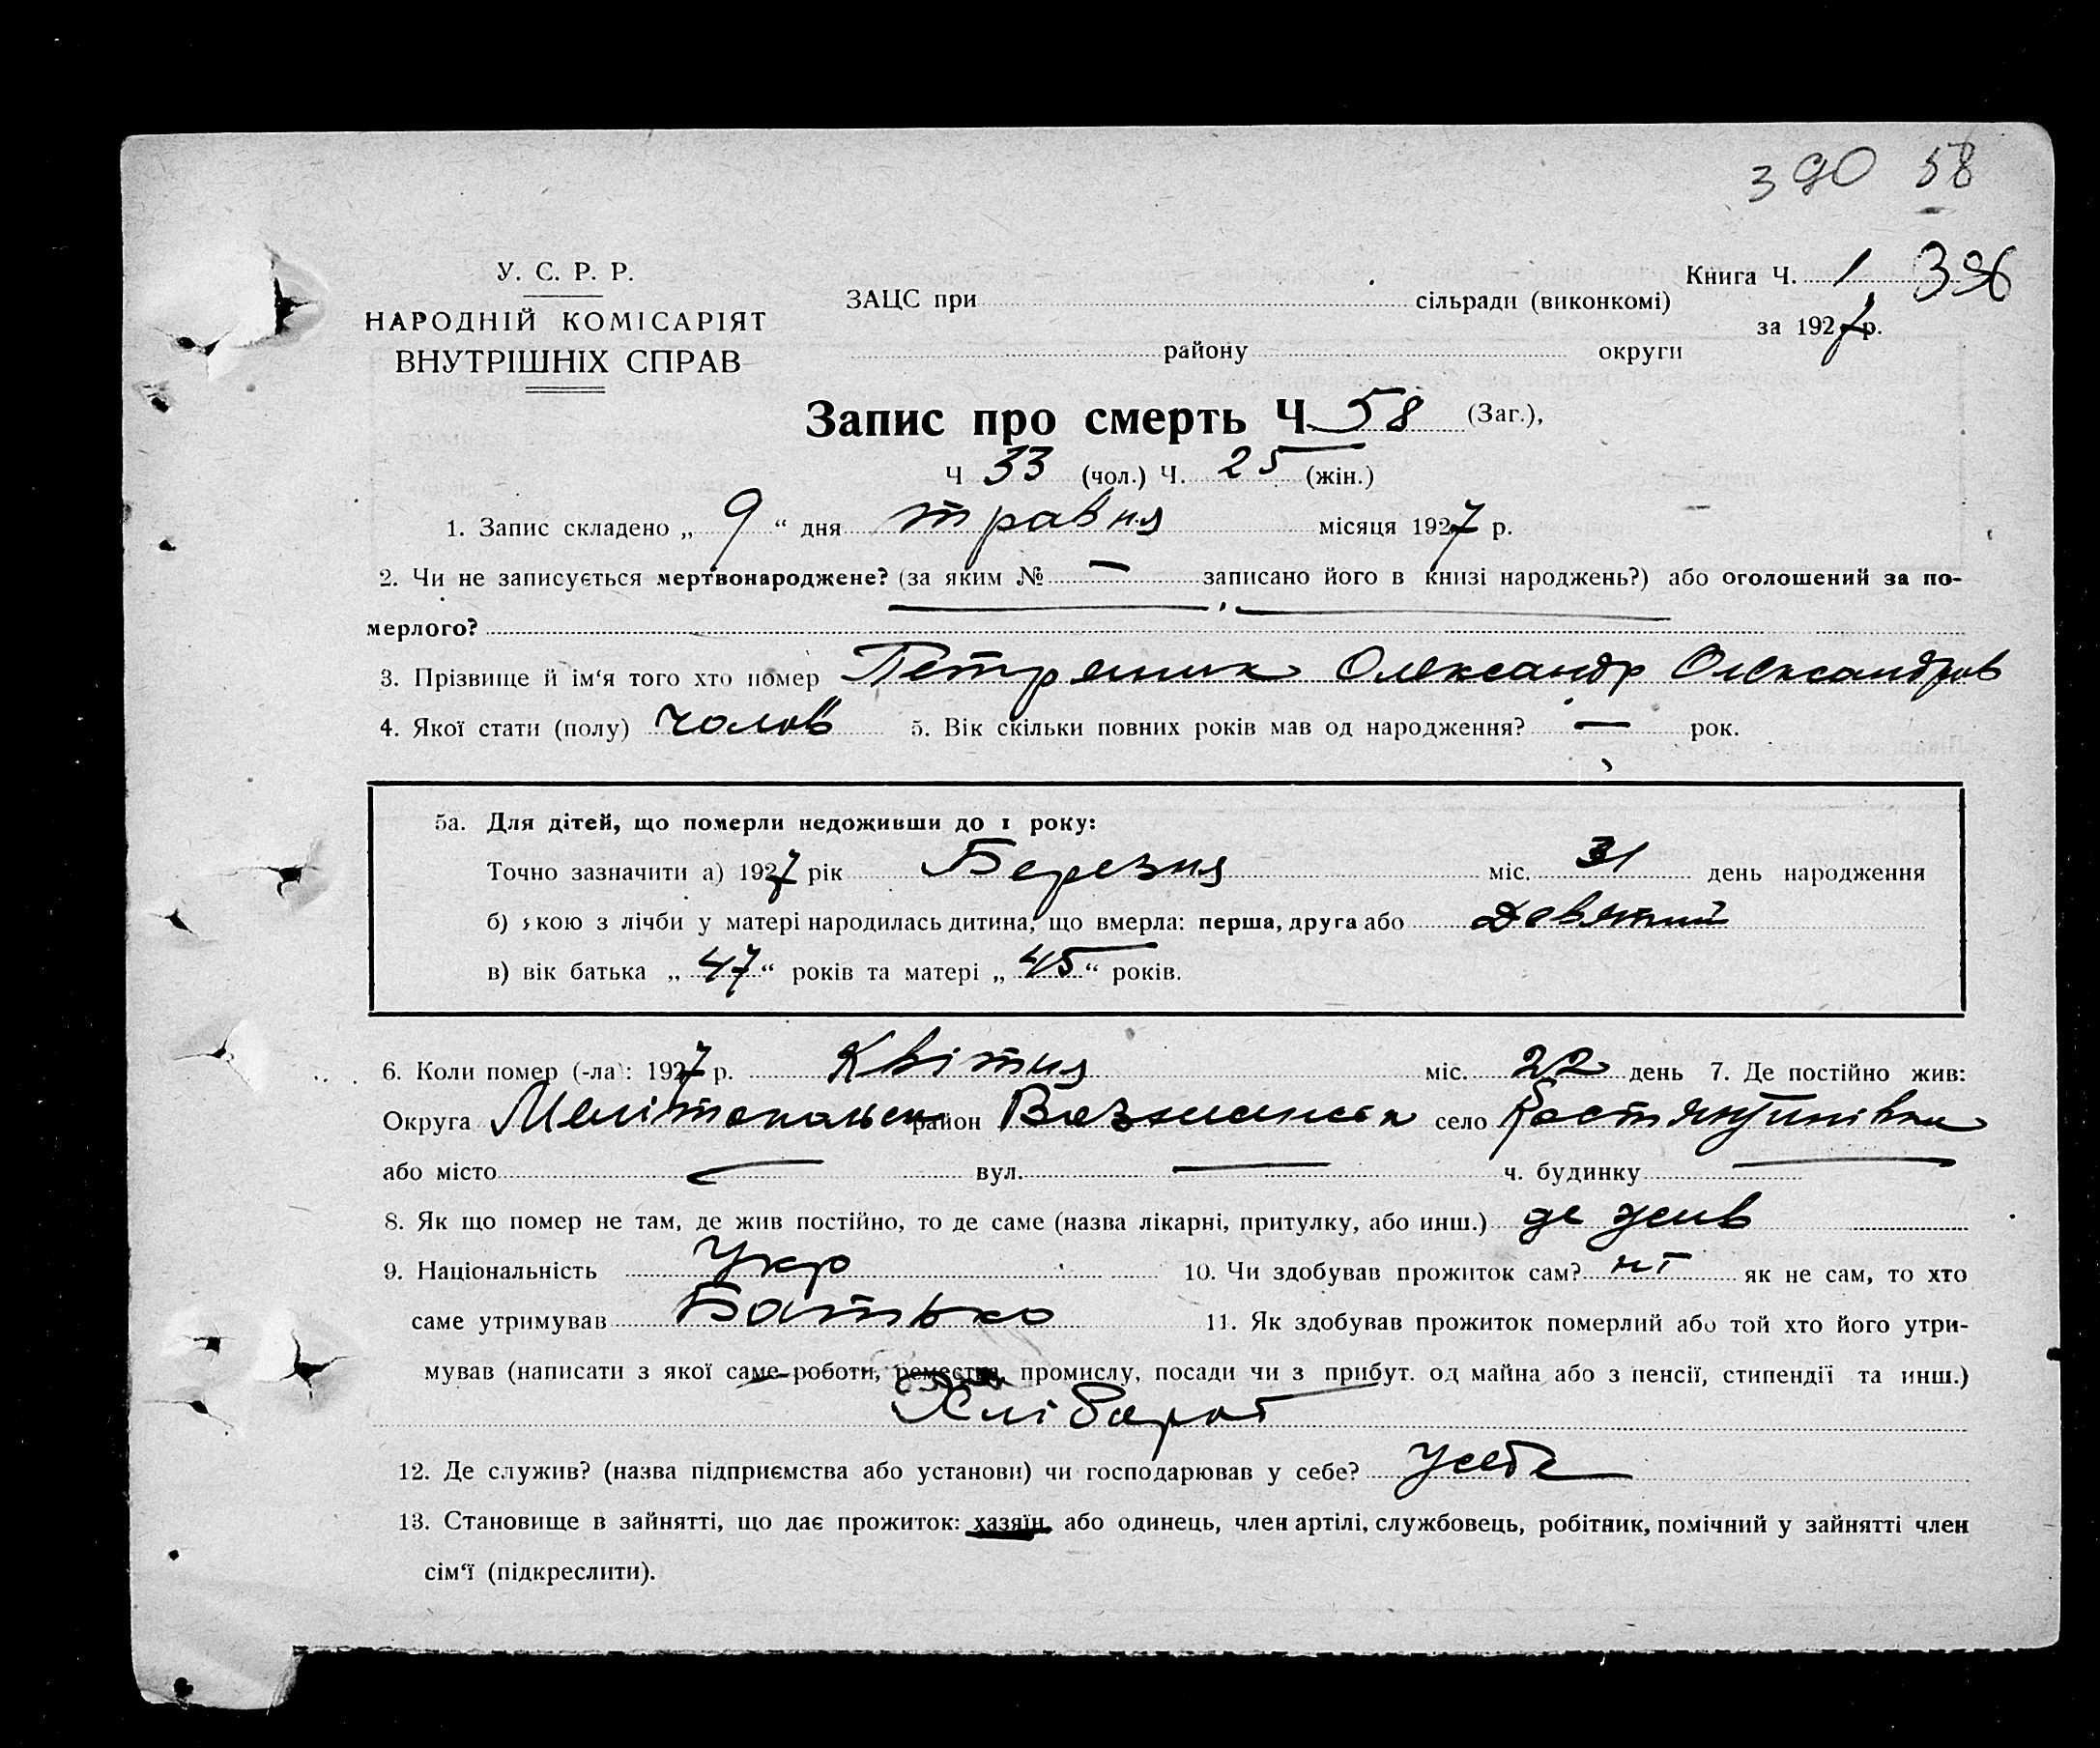 390 58
У. С. Р. Р.
НАРОДНІЙ КОМІСАРІЯТ
ВНУТРІШНІХ СПРАВ
ЗАЦС при сільради (виконкомі)
Книга Ч. 1 396
за 1927 р.
району округи
Запис про смерть Ч 58 (Заг.),
Ч 33 (чол.) Ч. 25 (жін.)
1. Запис складено „ 9 “ дня травня місяця 1927 р.
2. Чи не записується мертвонароджене? (за яким № — записано його в книзі народжень?) або оголошений за по-
мерлого?
3. Прізвище й ім‘я того хто помер Олександр Олександров
4. Якої стати (полу) чолов 5. Вік скільки повних років мав од народження? — рок.
5а. Для дітей, що померли недоживши до 1 року:
Точно зазначити а) 1927 рік Березня міс. 31 день народження
б) якою з лічби у матері народилась дитина, що вмерла: перша, друга або девятий
в) вік батька „ 47 “ років та матері „ 45 “ років.
6. Коли помер (-ла): 1927 р. Квітня міс. 22 день 7. Де постійно жив:
Округа Мелітопольск район село Костянтинівка
або місто — вул. — ч. будинку —
8. Як що помер не там, де жив постійно, то де саме (назва лікарні, притулку, або инш.) де жив
9. Національність Укр 10. Чи здобував прожиток сам? ні як не сам, то хто
саме утримував Батько 11. Як здобував прожиток померлий або той хто його утри-
мував (написати з якої саме роботи, ремества, промислу, посади чи з прибут. од майна або з пенсії, стипендії та инш.)
Хлібороб
12. Де служив? (назва підприємства або установи) чи господарював у себе? у себе
13. Становище в зайнятті, що дає прожиток: хазяїн, або одинець, член артілі, службовець, робітник, помічний у зайнятті член
сім‘ї (підкреслити).